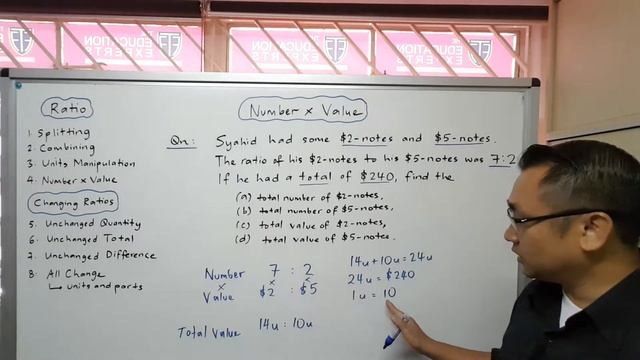 THE EDUCATION EXPERTS
THE EDUCATION EXPERTS
Ratio
1. Splitting
2. Combining
3. Units Manipulation
4. Number x Value
Changing Ratios
5. Unchanged Quantity
6. Unchanged Total
7. Unchanged Difference
8. All Change
↳ units and parts
Number x Value
Qn: Syahid had some $2-notes and $5-notes.
The ratio of his $2-notes to his $5-notes was 7:2
If he had a total of $240, find the
(a) total number of $2-notes,
(b) total number of $5-notes,
(c) total value of $2-notes,
(d) total value of $5-notes.
Number 7 : 2
x x x
Value $2 : $5
Total Value 14u : 10u
14u + 10u = 24u
24u = $240
1u = 10